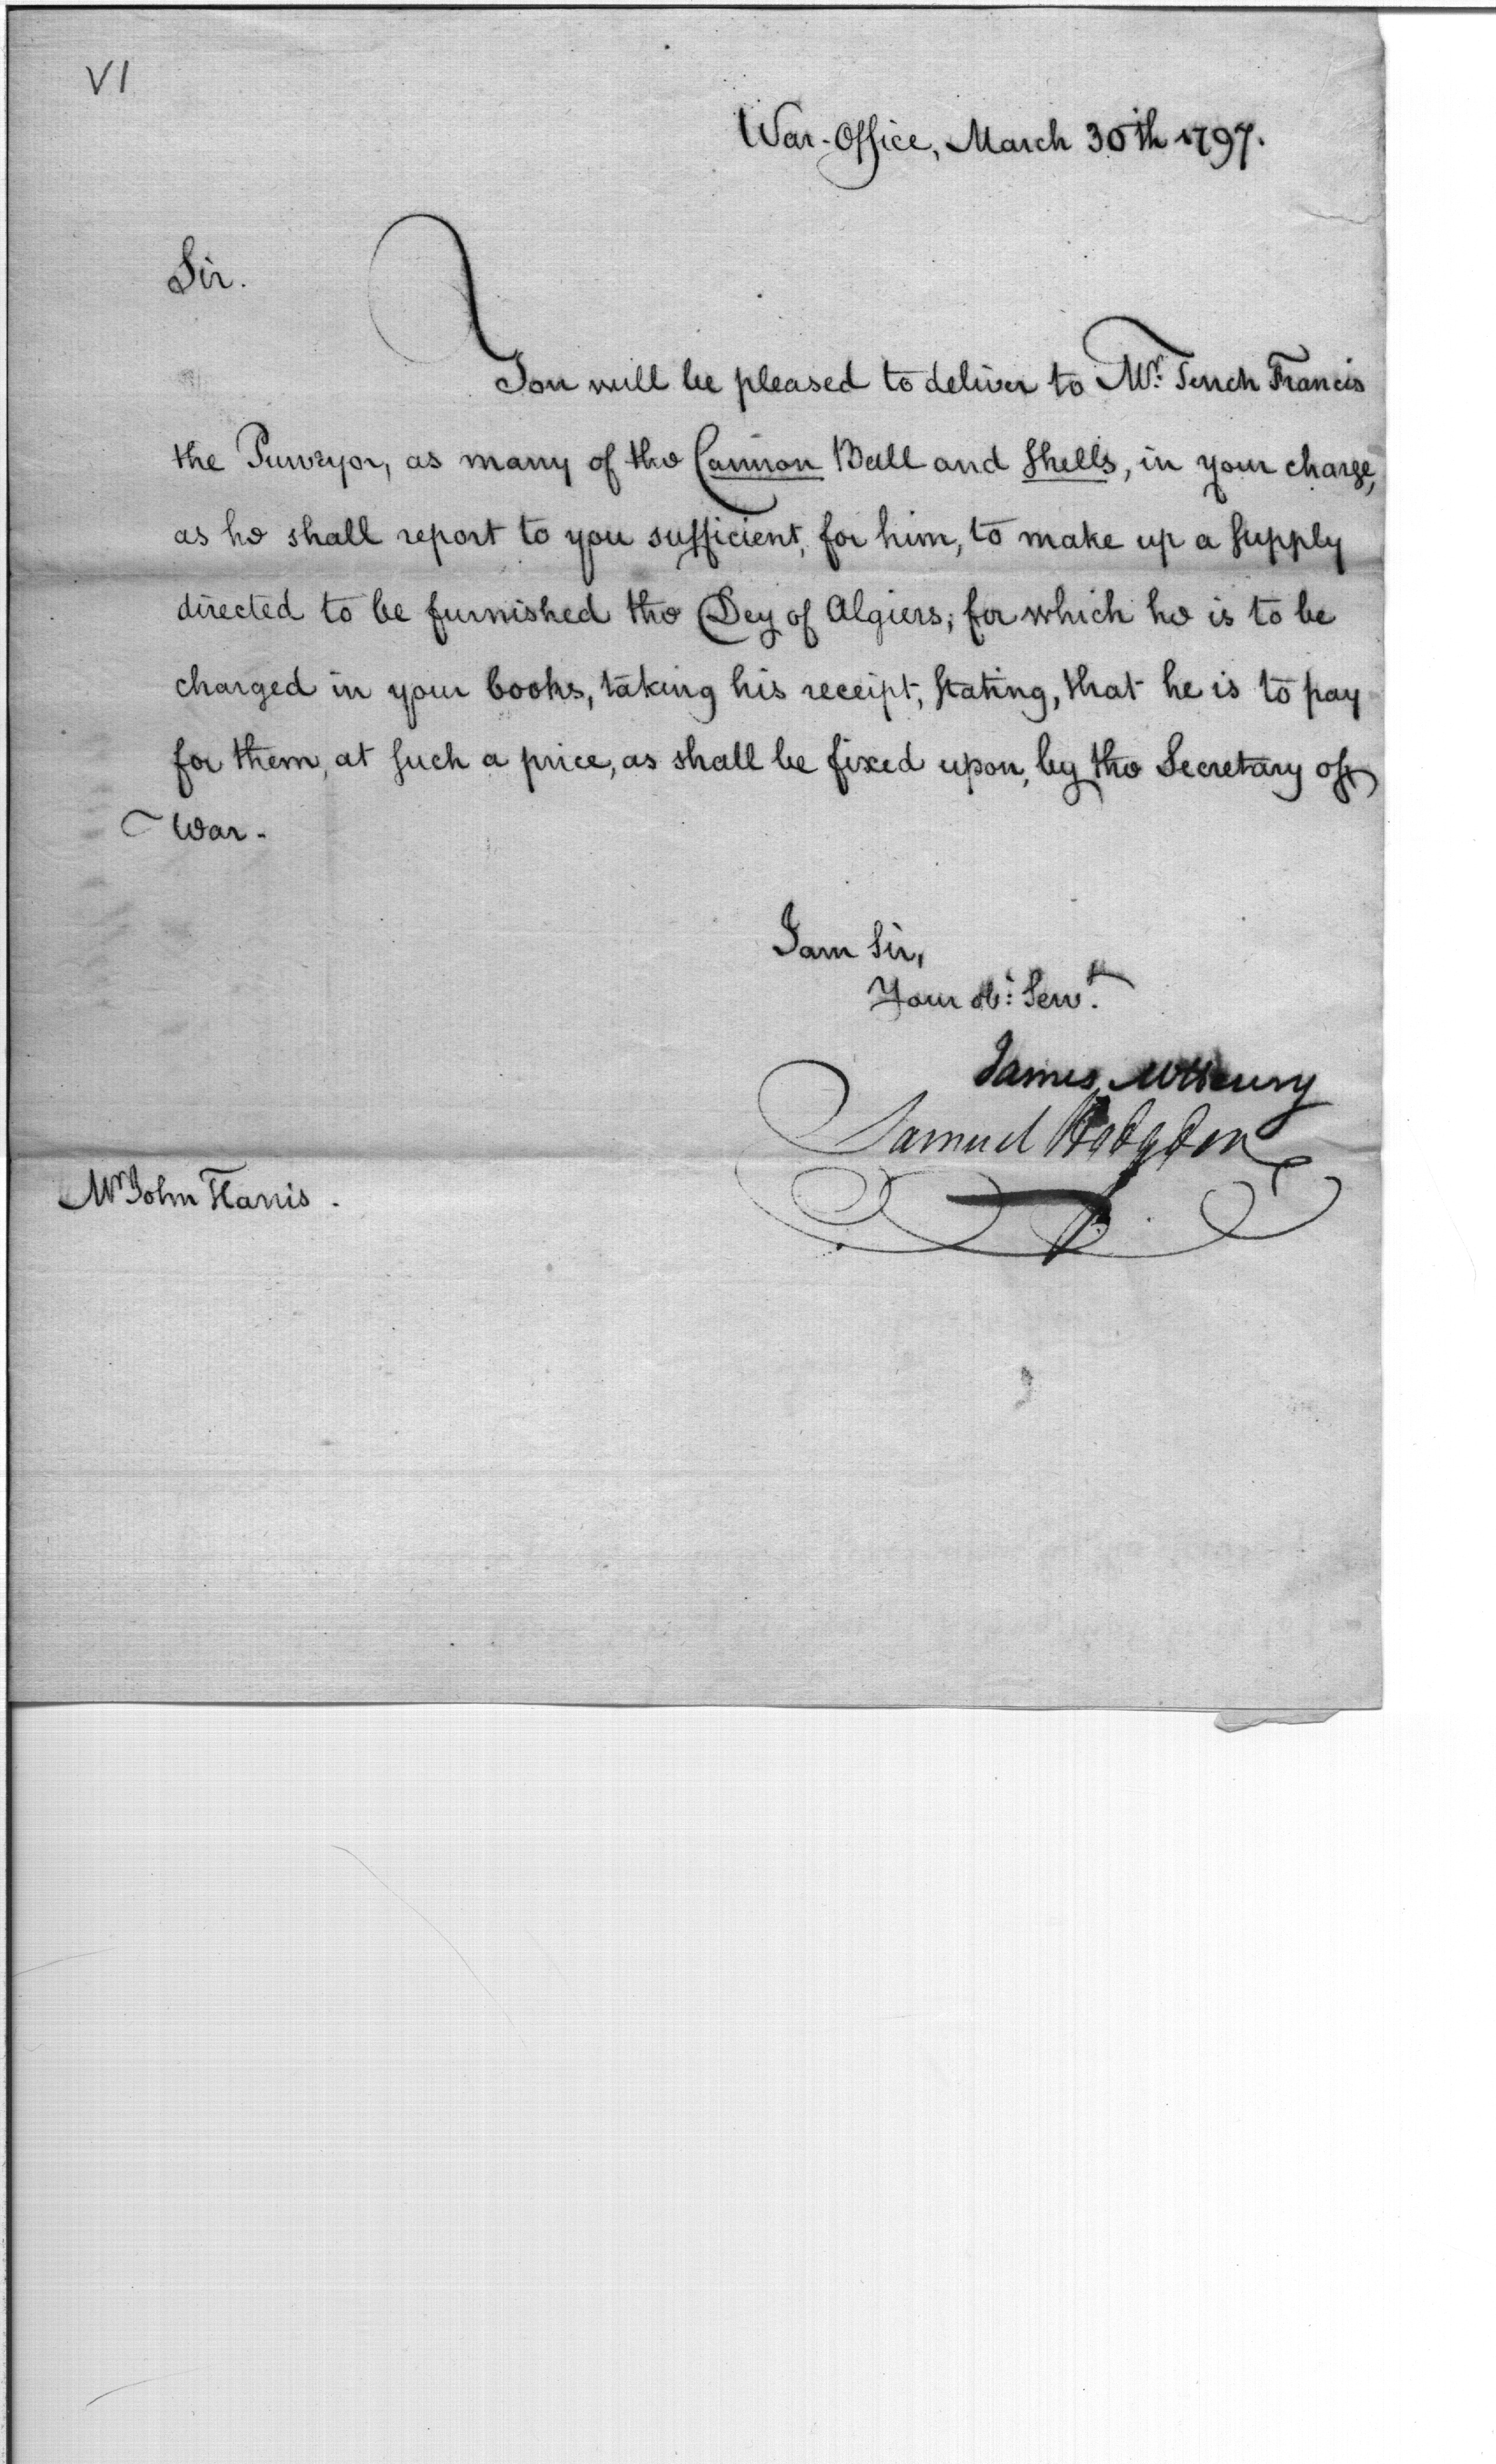 VI
War-Office, March 30th 1797.
Sir.
You will be pleased to deliver to Mr. Tench Francis
the Purveyor, as many of the Cannon Ball and Shells, in your charge,
as he shall report to you sufficient, for him, to make up a supply
directed to be furnished the Dey of Algiers; for which he is to be
charged in your books, taking his receipt, stating, that he is to pay
for them, at such a price, as shall be fixed upon, by the Secretary of
War.
I am Sir,
Your ob: Servt.
James McHenry
Samuel Hodgdon
Mr John Harris.